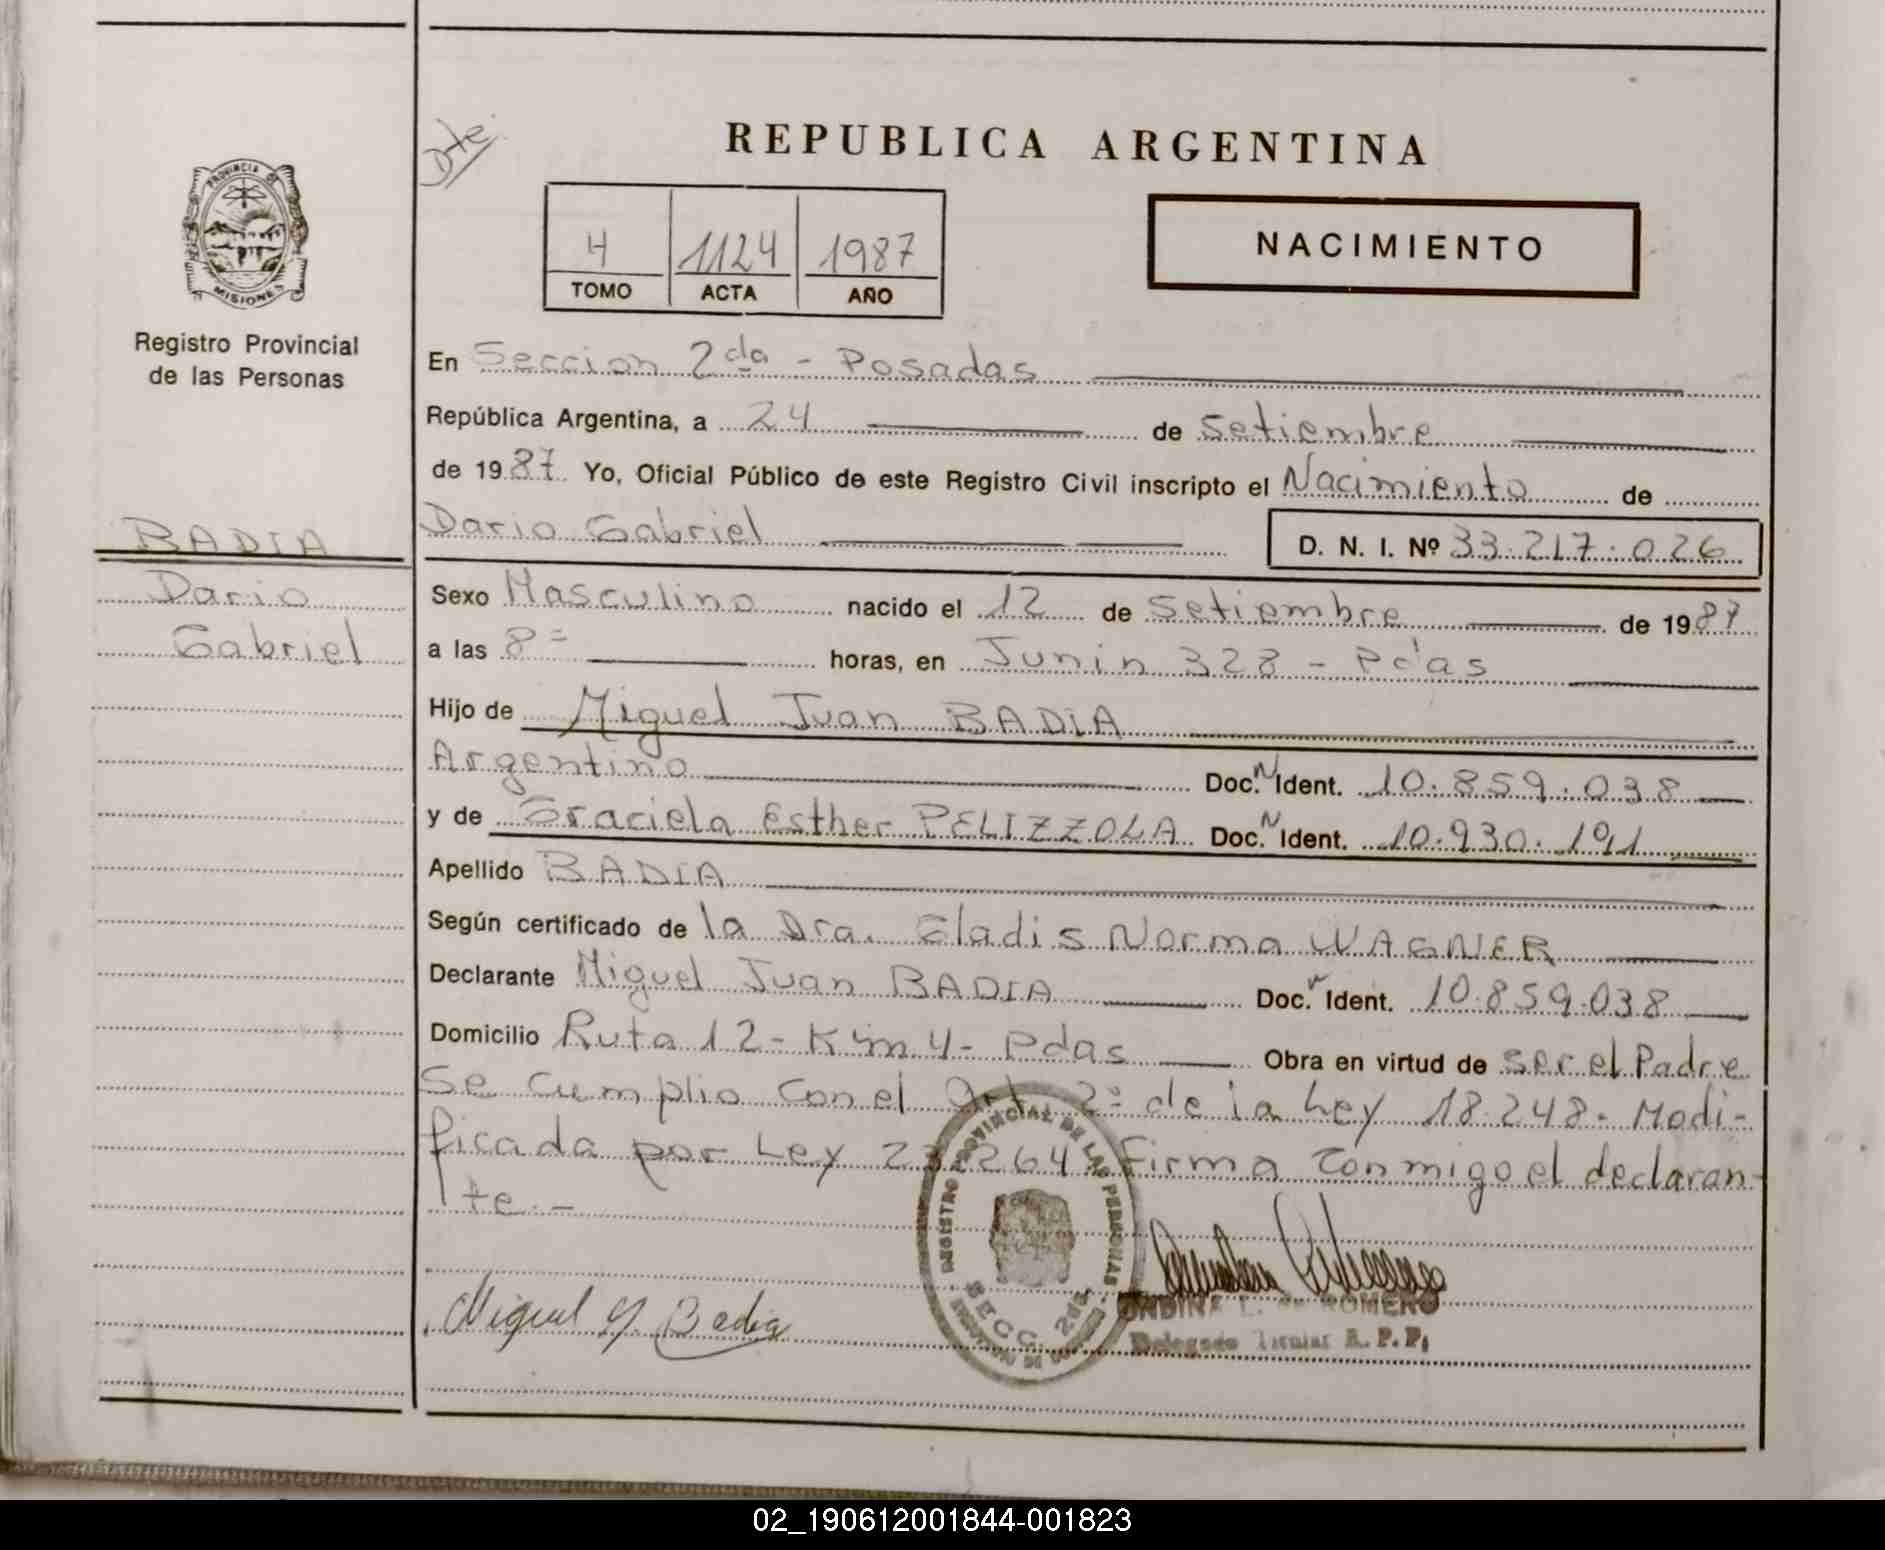 REPUBLICA ARGENTINA
Dte
PROVINCIA DE
MISIONES
Registro Provincial
de las Personas
4 1124 1987
TOMO ACTA AÑO
NACIMIENTO
En Seccion 2da - Posadas
República Argentina, a 24 de Setiembre
de 1987 Yo, Oficial Público de este Registro Civil inscripto el Nacimiento de
Dario Gabriel D. N. I. Nº 33.217.026
BADIA
Dario
Gabriel
Sexo Masculino nacido el 12 de Setiembre de 1987
a las 8= horas, en Junin 328 - Pdas
Hijo de Miguel Juan BADIA
Argentino Doc. N Ident. 10.859.038
y de Graciela Esther PELIZZOLA Doc. N Ident. 10.930.191
Apellido BADIA
Según certificado de la Dra. Gladis Norma WAGNER
Declarante Miguel Juan BADIA Doc. N Ident. 10.859.038
Domicilio Ruta 12 - Km 4 - Pdas Obra en virtud de ser el Padre
Se cumplio con el Art 2º de la Ley 18.248. Modi-
ficada por Ley 23.264. Firma conmigo el declaran-
te.-
REGISTRO PROVINCIAL DE LAS PERSONAS
SECC. 2da.
Miguel J Badia
ONDINA L. de ROMERO
Delegado Titular R. P. P.
02_190612001844-001823